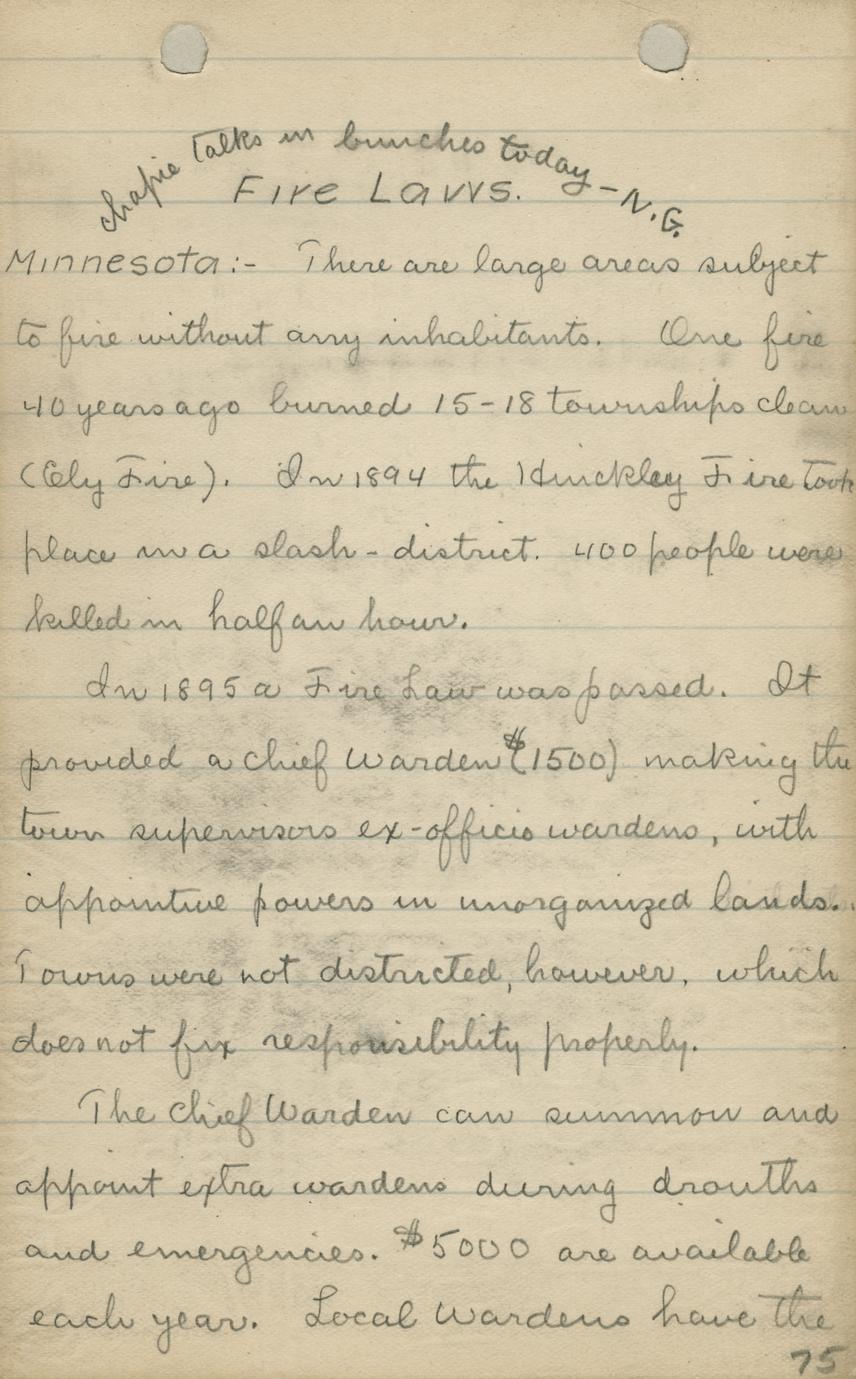 Chapie talks in bunches today – N.G.
Fire Laws.
Minnesota:- There are large areas subject
to fire without any inhabitants. One fire
40 years ago burned 15-18 townships clean
(Ely Fire). In 1894 the Hinckley Fire took
place in a slash-district. 400 people were
killed in half an hour.
In 1895 a Fire Law was passed. It
provided a Chief Warden ($1500) making the
town supervisors ex-officio wardens, with
appointive powers in unorganized lands.
Towns were not districted, however, which
does not fix responsibility properly.
The Chief Warden can summon and
appoint extra wardens during drouths
and emergencies. $5000 are available
each year. Local Wardens have the
75